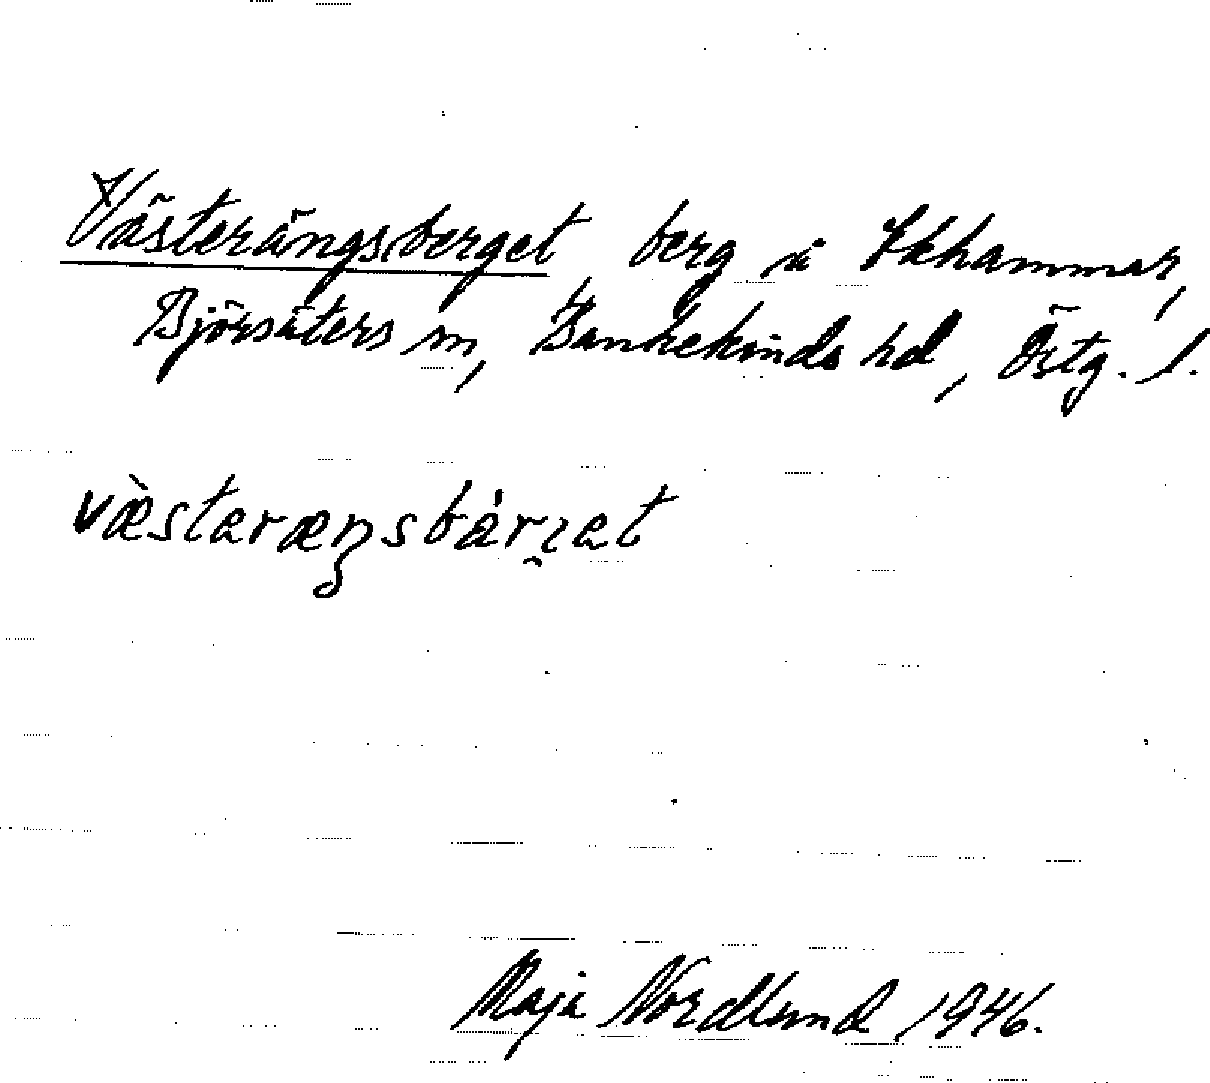 Västerängsberget berg å Skhammar,
Björsäters sn, Bankekinds hd, Östg. l.
væ̀staræŋsbárɪ̯et
Maja Nordlund 1946.